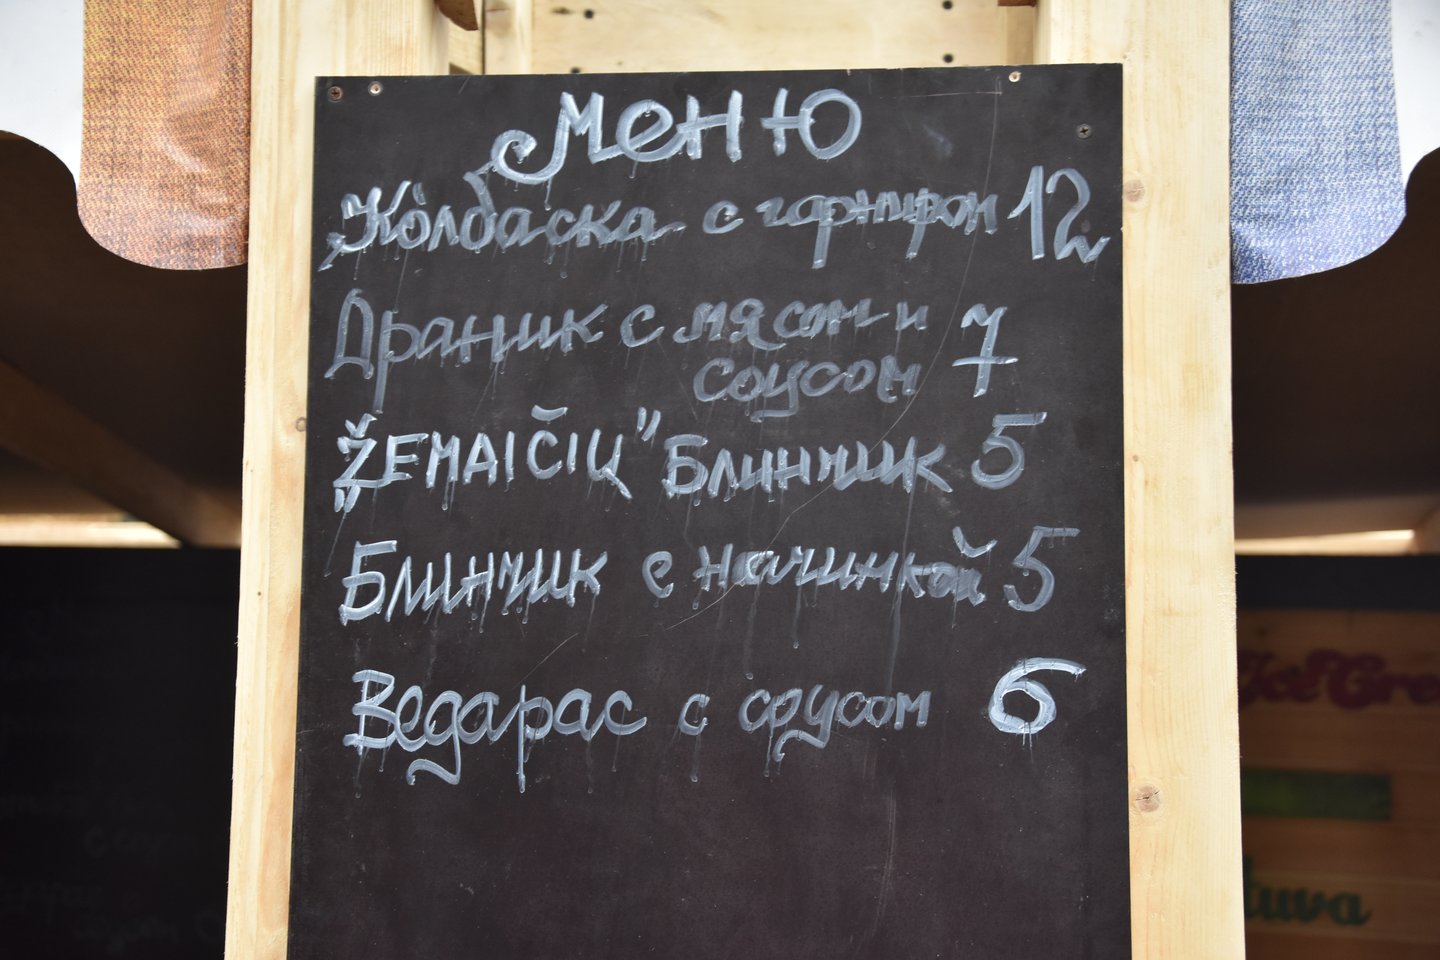 Меню
Колбаска с гарниром 12
Драник с мясом и 7
соусом
„ŽEMAIČIŲ” Блинчик 5
Блинчик с начинкой 5
Ведарас с соусом 6